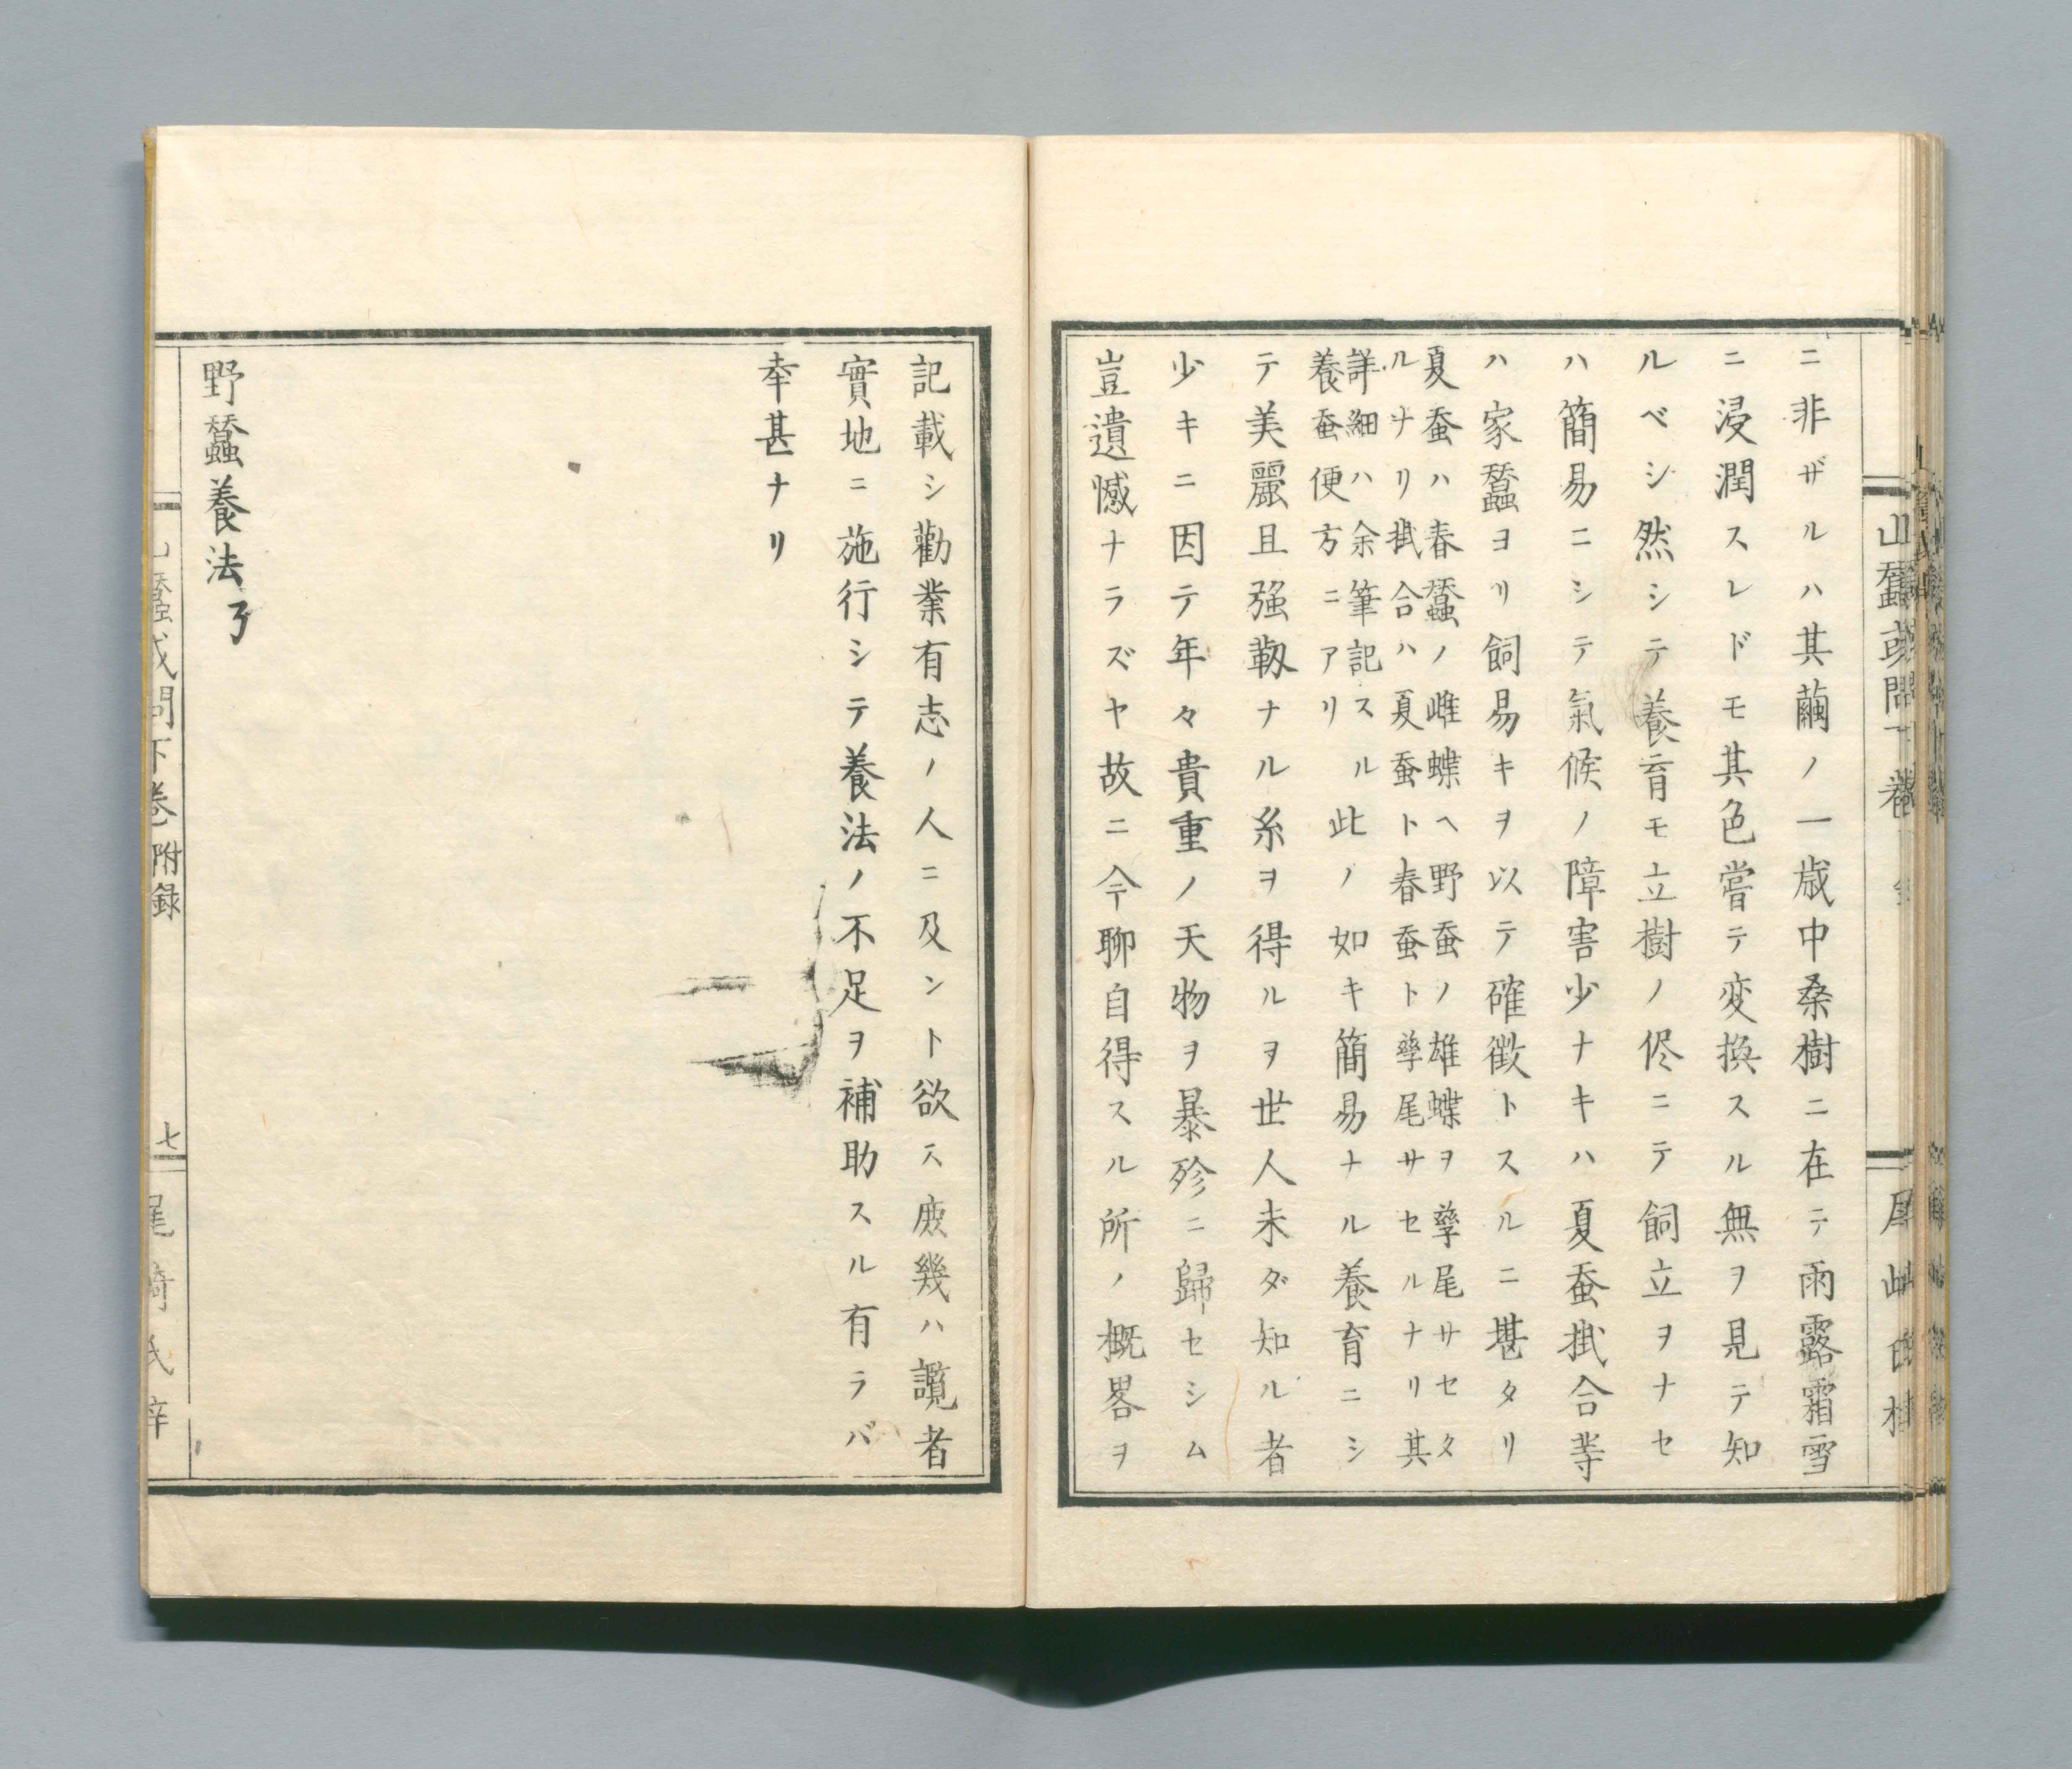 ニ非ザルハ其繭ノ一歳中桑樹ニ在テ雨露霜雪
ニ浸潤スレドモ其色嘗テ変換スル無ヲ見テ知
ルベシ然シテ養育モ立樹ノ侭ニテ飼立ヲナセ
ハ簡易ニシテ氣候ノ障害少ナキハ夏蚕掛合等
ハ家蠶ヨリ飼易キヲ以テ確徴トスルニ堪タリ
夏蚕ハ春蠶ノ雌蝶ヘ野蚕ノ雄蝶ヲ孳尾サセタ
ルナリ掛合ハ夏蚕ト春蚕ト孳尾サセルナリ其
詳細ハ余筆記スル
養蚕便方ニアリ
此ノ如キ簡易ナル養育ニシ
テ美麗且强靱ナル糸ヲ得ルヲ世人未ダ知ル者
少キニ因テ年々貴重ノ天物ヲ暴殄ニ歸セシム
豈遺憾ナラズヤ故ニ今聊自得スル所ノ概畧ヲ
記載シ勸業有志ノ人ニ及ント欲ス庻幾ハ讀者
實地ニ施行シテ養法ノ不足ヲ補助スル有ラバ
幸甚ナリ
野蠶養法了
下巻 附録
七